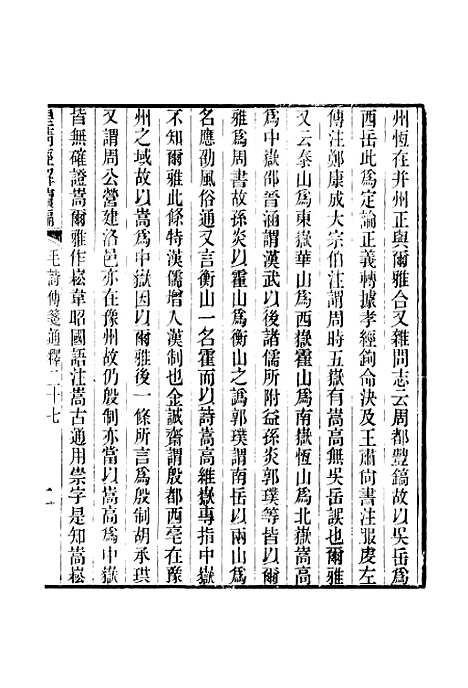 州恆在并州正與爾雅合又雜問志云周都豐鎬故以吳岳爲
西岳此爲定論正義轉據孝經鉤命決及王肅尚書注服虔左
傳注鄭康成大宗伯注謂周時五嶽有嵩高無吳岳誤也爾雅
又云泰山爲東嶽華山爲西嶽霍山爲南嶽恆山爲北嶽嵩高
爲中嶽邵晉涵謂漢武以後諸儒所附益孫炎郭璞等以爾
雅爲周書故孫炎以霍山爲衡山之譌郭璞謂南岳以兩山爲
名應劭風俗通又言衡山一名霍而以詩嵩高維嶽專指中嶽
不知爾雅此條特漢儒增入漢制也金誠齋謂殷都西亳在豫
州之域故以嵩爲中嶽因以爾雅後一條所言爲殷制胡承珙
又謂周公營建洛邑亦在豫州故仍殷制亦當以嵩高爲中嶽
皆無確證嵩爾雅作崧韋昭國語注嵩古通用崇字是知嵩
皇清經解續編
毛詩傳箋通釋二十七
二